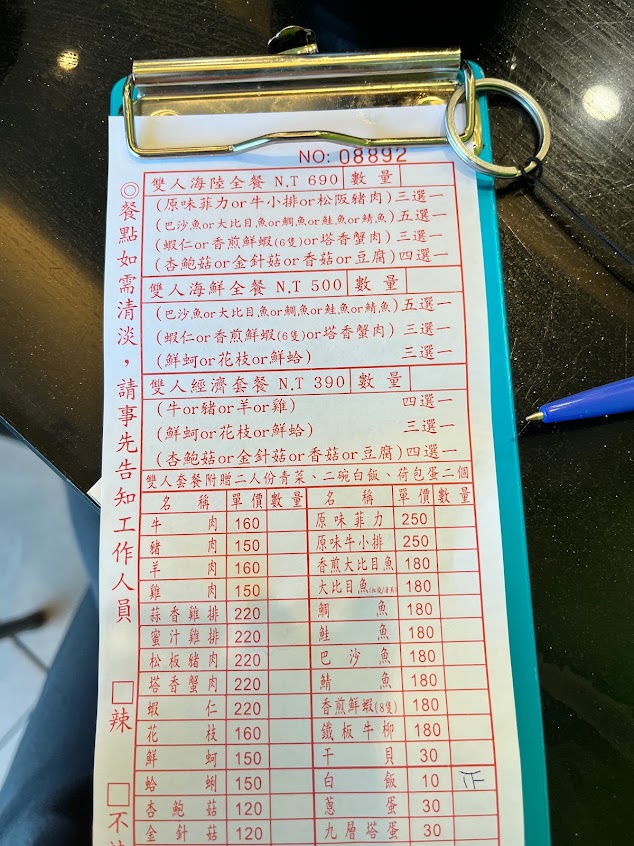 NO: 08892
雙人海陸全餐 N.T 690 數量
(原味菲力or牛小排or松阪豬肉)三選一
(巴沙魚or大比目魚or鯛魚or鮭魚or鯖魚) 五選一
(蝦仁or香煎鮮蝦(6隻)or塔香蟹肉) 三選一
(杏鮑菇or金針菇or香菇or豆腐)四選一
雙人海鮮全餐 N.T 500 數量
(巴沙魚or大比目魚or鯛魚or鮭魚or鯖魚)五選一
(蝦仁or香煎鮮蝦(6隻)or塔香蟹肉) 三選一
(鮮蚵or花枝or鮮蛤) 三選一
雙人經濟套餐 N.T 390 數量
(牛or豬or羊or雞) 四選一
(鮮蚵or花枝or鮮蛤) 三選一
(杏鮑菇or金針菇or香菇or豆腐)四選一
雙人套餐附贈二人份青菜、二碗白飯、荷包蛋二個
名稱 單價 數量 名稱 單價 數量
牛肉 160 原味菲力 250
豬肉 150 原味牛小排 250
羊肉 160 香煎大比目魚 180
雞肉 150 大比目魚 180
蒜香雞排 220 鯛魚 180
蜜汁雞排 220 鮭魚 180
松板豬肉 220 巴沙魚 180
塔香蟹肉 220 鯖魚 180
蝦仁 220 香煎鮮蝦(8隻) 180
花枝 160 鐵板牛柳 180
鮮蚵 150 干貝 30
蛤蜊 150 白飯 10 正
杏鮑菇 120 蔥蛋 30
金針菇 120 九層塔蛋 30
◎餐點如需清淡，請事先告知工作人員
□辣
□不